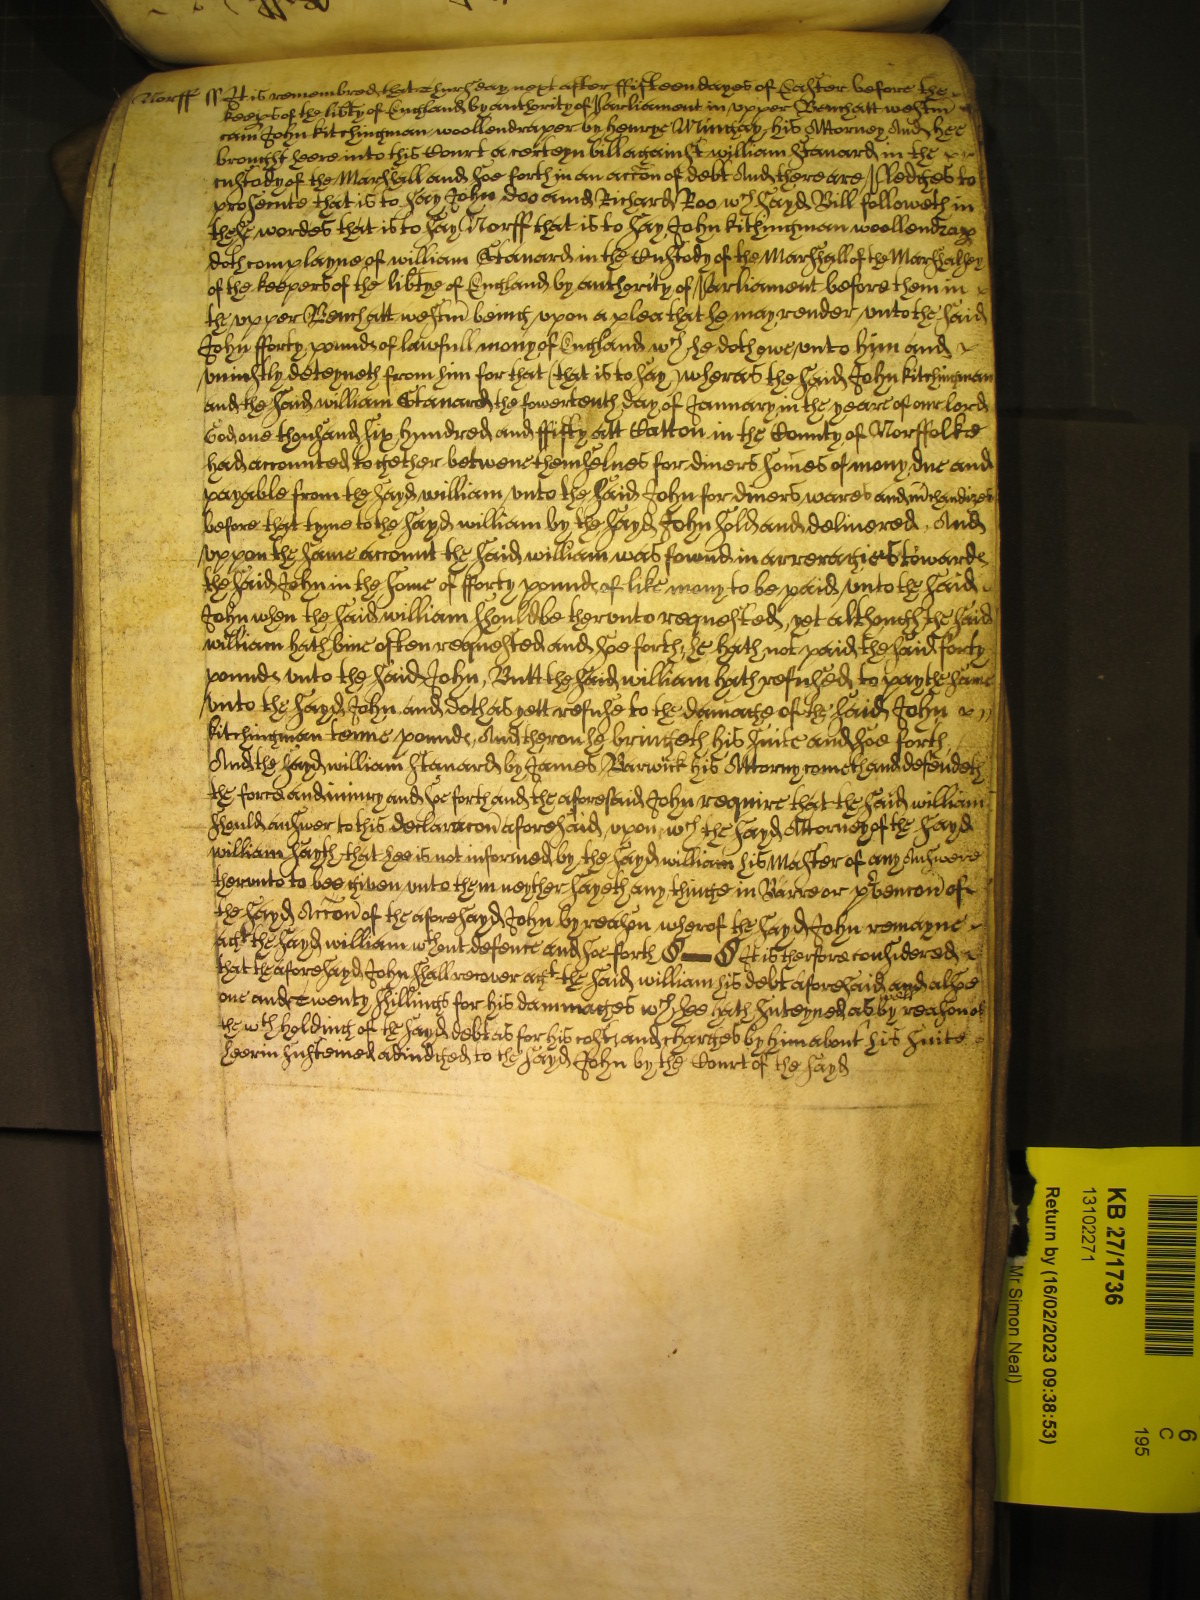 Norff ss It is remembred that thursday next after ffifteen dayes of Easter before the
keeps of the libty of England by authority of Parliament in upper Bench att westm
cam John kitchingman woollendraper by Henrye Mingay his Attorney And hee
brought heere into this Court a certeyn bill against william Stanard in the
custody of the Marshall and soe forth in an accon of debt And there are Pledges to
prosecute that is to say John doo and Richard Roo wch sayd Bill followeth in
these wordes that is to say Norff that is to say John kithingman woollendrap
doth complayne of william Stanard in the Custody of the Marshall of the Marshalsey
of the keepers of the libtye of England by authority of Parliament before them in
the upper Bench att westm being upon a plea that he may render unto the said
John fforty pounds of lawfull mony of England wch he doth owe unto him and
uniustly deteyneth from him for that (that is to say) wheras the said John kitchingman
and the said william Stanard the fowertenth day of January in the yeare of our lord
God one thousand six hundred and ffifty att Catton in the County of Norffolke
had accounted together betwene themselves for divers somes of mony due and
payable from the sayd william unto the said John for divers wares and mchandizes
before that tyme to the sayd william by the sayd John sold and delivered. And
uppon the same account the said william was fownd in arreragies towards
the said John in the some of fforty pounds of like mony to be paid unto the said
John when the said william should be therunto requested, yet although the said
william hath bine often requested and soe forth, he hath not paid the said forty
pounds unto the said John, Butt the said william hath refused to pay the same
unto the sayd John and doth as yett refuse to the damage of the said John
kitchingman tenne pounds, And theron he bringeth his suite and soe forth
And the sayd william Stanard by James Barwick his Attorny cometh and defendeth
the force and iniury and soe forth and the aforesaid John require that the said william
should answer to this declaracon aforesaid, upon wch the sayd Attorney of the sayd
william sayth that hee is not informed by the sayd william his Master of any Answere
therunto to bee given unto them neyther sayeth any thinge in Barre or pvencon of
the sayd Accon of the aforesayd John by reason wherof the sayd John remayne
agt the sayd william wthout defence and soe forth It is therfore considered
that the aforesayd John shall recover agt the said william his debt aforesaid and alsoe
one and twenty shillings for his dammages wch hee hath susteyned as well by reason of
the wthholding of the sayd debt as for his costs and charges by him about his suite
heerin susteined adiudged to the sayd John by the Court of the sayd
KB 27/1736
13102271
Return by (16/02/2023 09:38:53)
Mr Simon Neal)
6
C
195